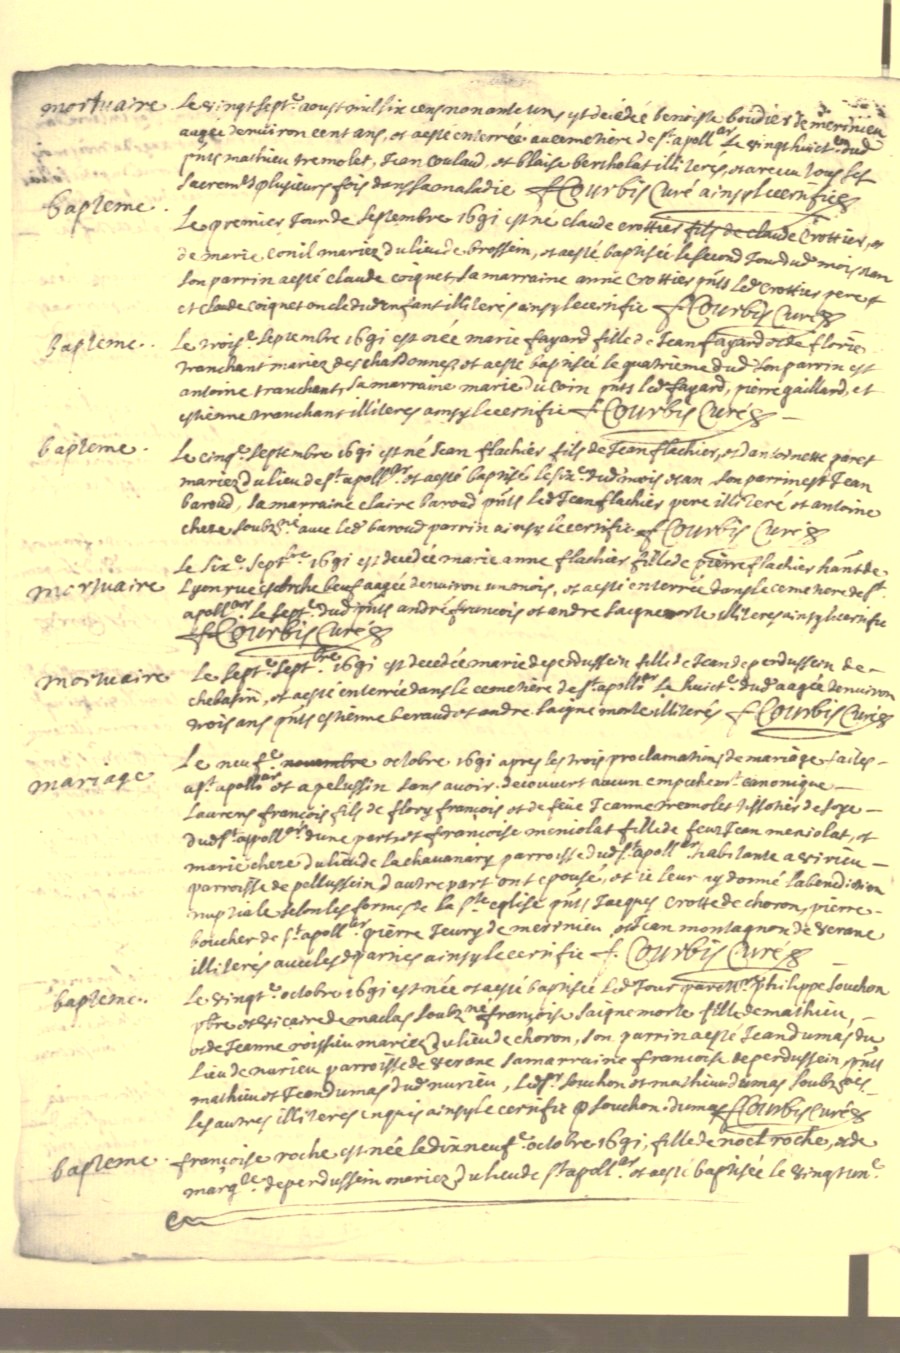 mortuaire. Le vingt sept.e aoust mil six cens nonante un, est decedée benoiste boudier de merinieu
aagée denviron cent ans, et a esté enterrée au cemetiere de st. apoll.ar le vingt huict.e dud
pnts mathieu tremolet, Jean coulaud, et blaise bertholat illiterés, et a receu tous les
sacrem.ts plusieurs fois dans sa maladie f Courbis Curé ainsy le certifie
bapteme. Le premier Jour de septembre 1691 est né claude crottier fils de claude Crottier, et
de marie conil mariez du lieu de brossein, et a esté baptisé le second Jour dud mois et an
son parrin a esté claude coignet, sa marraine anne Crottier pnts led crottier pere et
et claude coignet oncle dud enfant illiterés ainsy le certifie f Courbis Curé
Bapteme. Le trois.e septembre 1691 est née marie fayard fille de Jean fayard et de florie
tranchant mariez des chardonnez et a esté baptisée le quatrieme dud son parrin est
antoine tranchant, sa marraine marie du coin pnts led fayard, pierre gaillard, et
estienne tranchant illiteres ainsy le certifie f Courbis Curé
bapteme. Le cinq.e septembre 1691 est né Jean flachier fils de Jean flachier, et dantoinette paret
mariez du lieu de st. apoll.ar et a esté baptisé le six.e dud mois et an son parrin est Jean
baroud, sa marraine claire baroud pnts led Jean flachier pere illiteré et antoine
cheze soubz.né avec led baroud parrin ainsy le certifie f Courbis Curé
mortuaire Le six.e sept.bre 1691 est decedée marie anne flachier fille de pierre flachier hant de
Lyon rue escorche beuf aagée denviron un mois, et a esté enterrée dans le cemetiere de st.
apoll.ar le sept.e dud pnts andré francois et andre saignemorte illiteres ainsy le certifie
f Courbis Curé
mortuaire Le sept.e sept.bre 1691 est decedée marie deperdussein fille de Jean deperdussein de
chebasin, et a esté enterrée dans le cemetiere de st. apoll.ar Le huict.e dud aagée denviron
trois ans pnts estienne beraud et andre saignemorte illiterés f Courbis Curé
mariage Le neuf.e novembre octobre 1691 apres les trois proclamations de mariage faites
a st. apoll.ar et a pelussin sans avoir decouvert aucun empechem.t canonique
Laurens françois fils de flory françois et de feüe Jeanne tremolet tissotier de soye
dud st. apoll.ar dune part, et françoise meniolat fille de feu Jean meniolat, et
marie cheze du lieu de la chavanary parroisse dud st. apoll.ar habitante a virieu
parroisse de pellussein d autre part ont epousé, et ie leur ay donné la benediction
nuptiale selon les formes de la ste. eglise pnts Jacques Crotte de choron, pierre
boucher de st. apoll.ar pierre Jeury de merinieu et Jean montagnon de verane
illiterés avec les parties ainsy le certifie f. Courbis Curé
bapteme. Le vingt.e octobre 1691 est née et a esté baptisée led Jour par m.re philippe souchon
pbre et vicaire de maclas soubz.né françoise saignemorte fille de mathieu,
et de Jeanne roissieu mariez du lieu de choron, son parrin a esté Jean dumas du
Lieu de nurieu parroisse de verane sa marraine francoise deperdussein, pnts
mathieu et Jean dumas dud nurieu, Led sr. souchon et mathieu dumas soubz.nés
Les autres illiteres enquis ainsy le certifie P souchon. dumas f Courbis Curé
bapteme françoise roche est née le dixneuf.e octobre 1691, fille de noel roche, et de
marg.te deperdussein mariez du lieu de st apoll.ar et a esté baptisée le vingt un.e